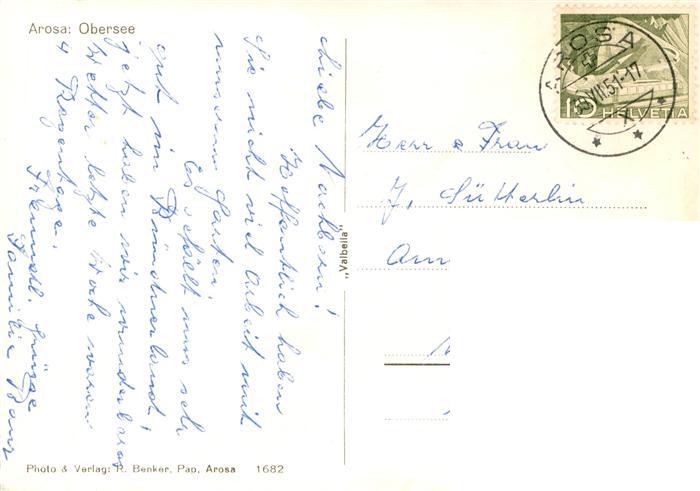 Arosa: Obersee
Liebe Nachbarn!
Hoffentlich haben
Sie nicht viel Arbeit mit
unserem Garten!
Es gefällt uns sehr
gut im Bündnerland!
jetzt haben wir wunderbares
Wetter letzte Woche waren
4 Regentage.
Freundl. Grüsse
Familie
"Valbella"
AROSA
51-17
10
HELVETIA
Herr & Frau
J. Sütterlin
Am
Photo & Verlag: R. Benker, Pap, Arosa 1682